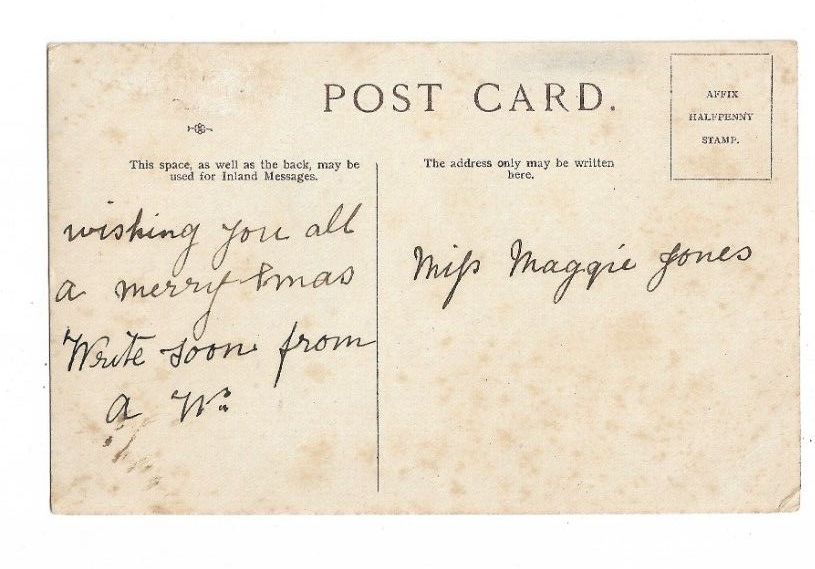 POST CARD.
AFFIX
HALFPENNY
STAMP.
This space, as well as the back, may be
used for Inland Messages.
The address only may be written
here.
wishing you all
a merry Xmas
Write soon from
a W
Miss Maggie Jones